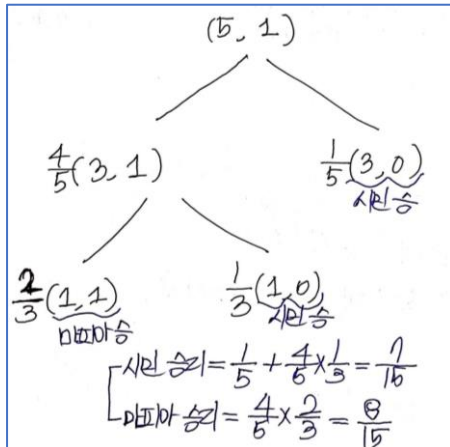 (5, 1)
4/5 (3, 1)
1/5 (3, 0)
시민 승
2/3 (1, 1)
마피아승
1/3 (1, 0)
시민 승
시민 승리 = 1/5 + 4/5 × 1/3 = 7/15
마피아 승리 = 4/5 × 2/3 = 8/15